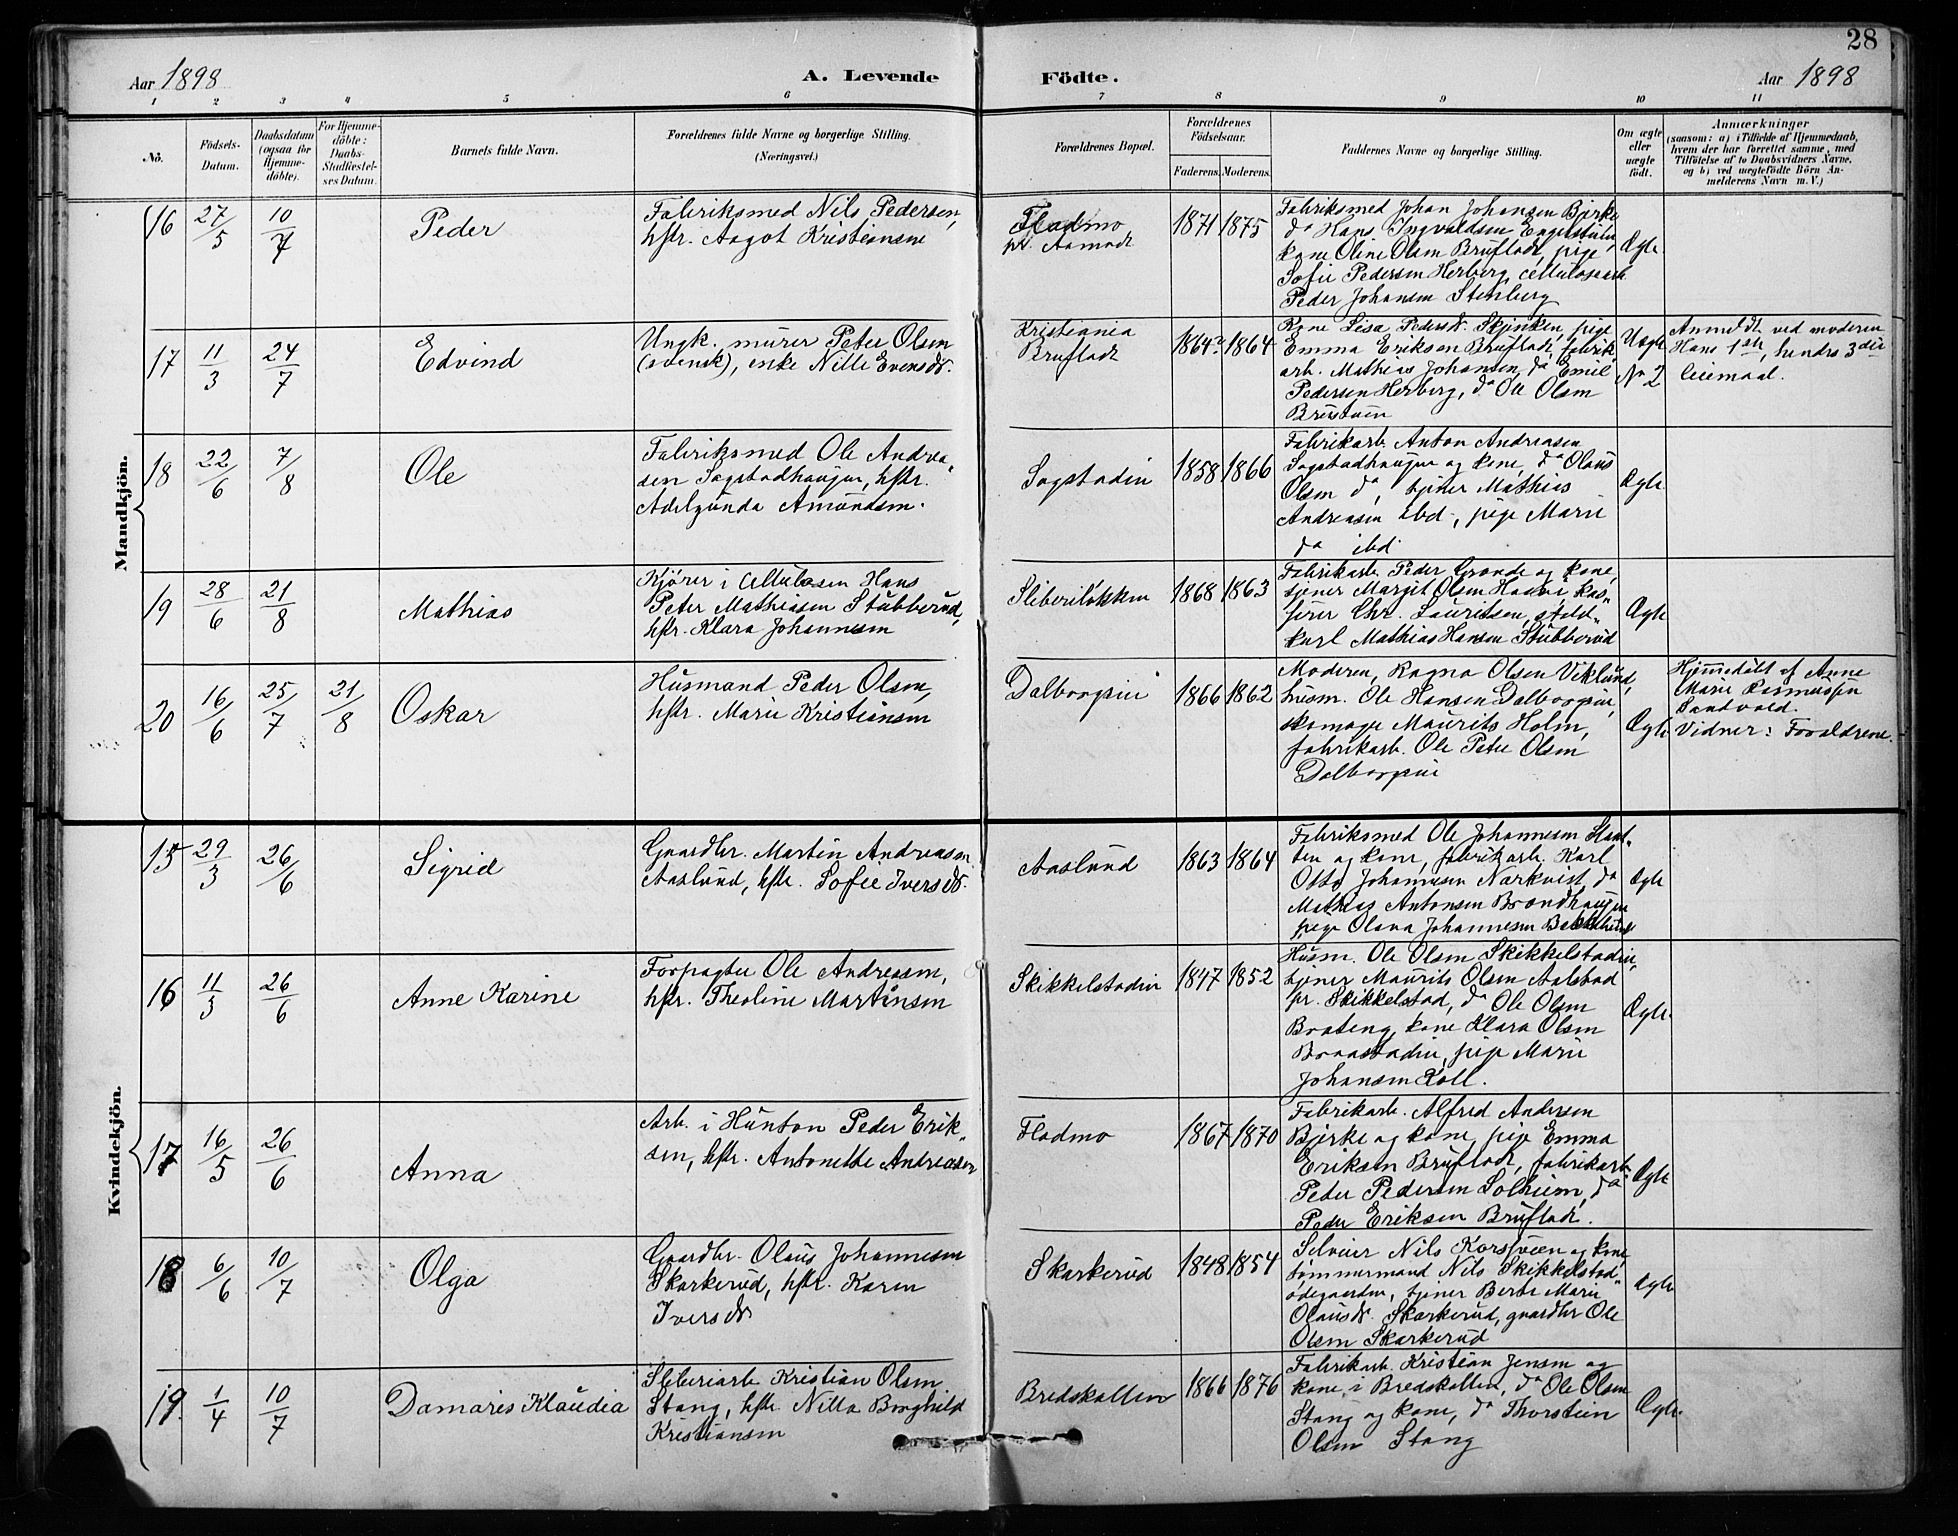 28
Aar 1898
A. Levende
Födte.
Aar 1898
1 2 3 4 5 6 7 8 9 10 11
No.
Födsels-
Datum.
Daabsdatum
(ogsaa for
Hjemme-
döbte).
For Hjemme-
döbte:
Daabs-
Stadfæstel-
ses Datum.
Barnets fulde Navn.
Forældrenes fulde Navne og borgerlige Stilling.
(Næringsvei.)
Forældrenes Bopæl.
Forældrenes
Födselsaar.
Faderens. Moderens.
Faddernes Navne og borgerlige Stilling.
Om ægte
eller
uægte
födt.
Anmærkninger
(saasom: a) i Tilfælde af Hjemmedaab,
hvem der har forrettet samme, med
Tilföielse af to Daabsvidners Navne,
og b) ved uægtefödte Börn An-
melderens Navn m. V.)
Mandkjön.
16
27/5
10/7
Peder
Fabriksmed Nils Pedersen,
hstr. Aagot Kristiansen
Fladmo
pt. Aamodt
1871 1875
Fabriksmed Johan Johansen Bjørke,
do Hans Ingvaldsen Engelstuen,
kone Oline Olsen Brufladt, pige
Sofie Pedersen Herberg, cellulosearb.
Peder Johansen Stenberg
Ægte
17
11/3
24/7
Edvind
Ungk. murer Peter Olsen
(svensk), enke Nille Evensdr.
Kristiania
Brufladt
1864? 1864
Kone Lisa Pedersdr. Skjinken, pige
Emma Eriksen Brufladt, fabrik
arb. Mathias Johansen, do Emil
Pedersen Herberg, do Ole Olsen
Uægte
No 2
Anmeldt ved moderen
Hans 1ste, hendes 3die
leiemaal.
18
22/6
7/8
Ole
Fabriksmed Ole Andrea-
sen Sogstadhaugen, hstr.
Adelgunda Amundsen.
Sogstadeie
1858 1866
Fabrikarb. Anton Andreasen
Sogstadhaugen og kone, do Olaus
Olsen do, tjener Mathias
Andreasen ibd., pige Marie
do ibd.
Ægte
19
28/6
21/8
Mathias
Kjører i Cellulosen Hans
Peter Mathiasen Stubberud,
hstr. Klara Johannesen
Sliberiløkken
1868 1863
Fabrikarb. Peder Grande og kone,
tjener Margit Olsen Haave, kas-
serer Chr. Lauritsen, stald-
karl Mathias Hansen Stubberud
Ægte
20
16/6
25/7
21/8
Oskar
Husmand Peder Olsen,
hstr. Marie Kristiansen
Dalborgseie
1866 1862
Moderen, Ragna Olsen Viklund,
husm. Ole Hansen Dalborgseie,
skomager Maurits Holm,
fabrikarb. Ole Peter Olsen
Dalborgseie
Ægte
Hjemmedøbt af Anne
Marie Rasmussen
Sandvold.
Vidner: Forældrene.
Kvindekjön.
15
29/3
26/6
Sigrid
Gaardbr. Martin Andreasen
Aaslund, hstr. Sofie Iversdr.
Aaslund
1863 1864
Fabriksmed Ole Johannesen Slaat-
ten og kone, fabrikarb. Karl
Otto Johannesen Narkvist, do
Mathias Antonsen Brandhaugen
pige Olava Johannesen Bakkelund
Ægte
16
11/5
26/6
Anne Karine
Forpagter Ole Andreasen,
hstr. Theoline Martinsen
Skikkelstadeie
1847 1852
Husm. Ole Olsen Skikkelstadeie,
tjener Maurits Olsen Aalstad
pr. Skikkelstad, do Ole Olsen
Braateng, kone Klara Olsen
Braastadeie, pige Marie
Johansen Koll.
Ægte
17
16/5
26/6
Anna
Arb. i Hunton Peder Erik-
sen, hstr. Antonette Andreasen
Fladmo
1867 1870
Fabrikarb. Alfred Andersen
Bjørke og kone, pige Emma
Eriksen Brufladt, fabrikarb.
Peder Pedersen Solheim, do
Peder Eriksen Brufladt.
Ægte
18
6/6
10/7
Olga
Gaardbr. Olaus Johannesen
Skarkerud, hstr. Karen
Iversdr
Skarkerud
1848 1854
Selveier Nils Korsveen og kone,
tømmermand Nils Skikkelstad-
ødegaarden, tjener Berte Marie
Olausdr. Skarkerud, gaardbr Ole
Olsen Skarkerud
Ægte
19
1/4
10/7
Damaris Klaudia
Sliberiarb. Kristian Olsen
Stang, hstr. Nilla Borghild
Kristiansen
Bredskallen
1866 1876
Fabrikarb. Kristian Jensen og
kone i Bredskallen, do Ole Olsen
Stang og kone, do Thorstein
Olsen Stang
Ægte.